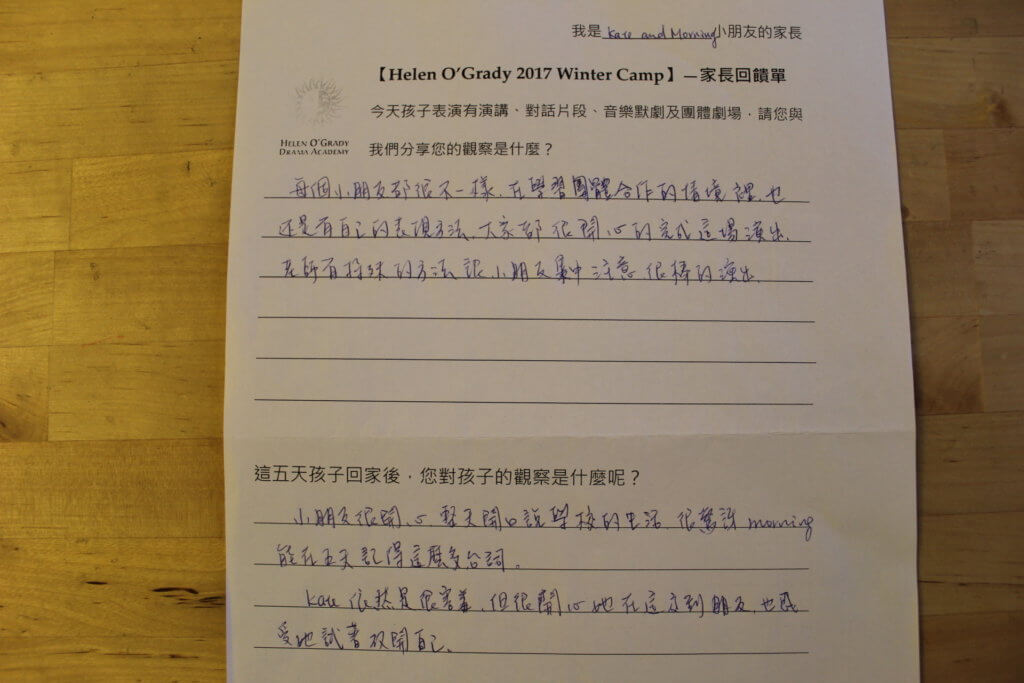 我是 Kate and Morning小朋友的家長
【Helen O'Grady 2017 Winter Camp】—家長回饋單
今天孩子表演有演講、對話片段、音樂默劇及團體劇場，請您與
HELEN O'GRADY
DRAMA ACADEMY
我們分享您的觀察是什麼？
每個小朋友都很不一樣，在學習團體合作的情境裡，也
還是有自己的表現方法，大家都很開心的完成這場演出，
老師有特殊的方法讓小朋友集中注意，很棒的演出。
這五天孩子回家後，您對孩子的觀察是什麼呢？
小朋友很開心，整天開口說學校的生活，很驚訝 morning
能在五天記得這麼多台詞。
Kate 依然是很害羞，但很開心她在這交到朋友，也感
受她試著放開自己。